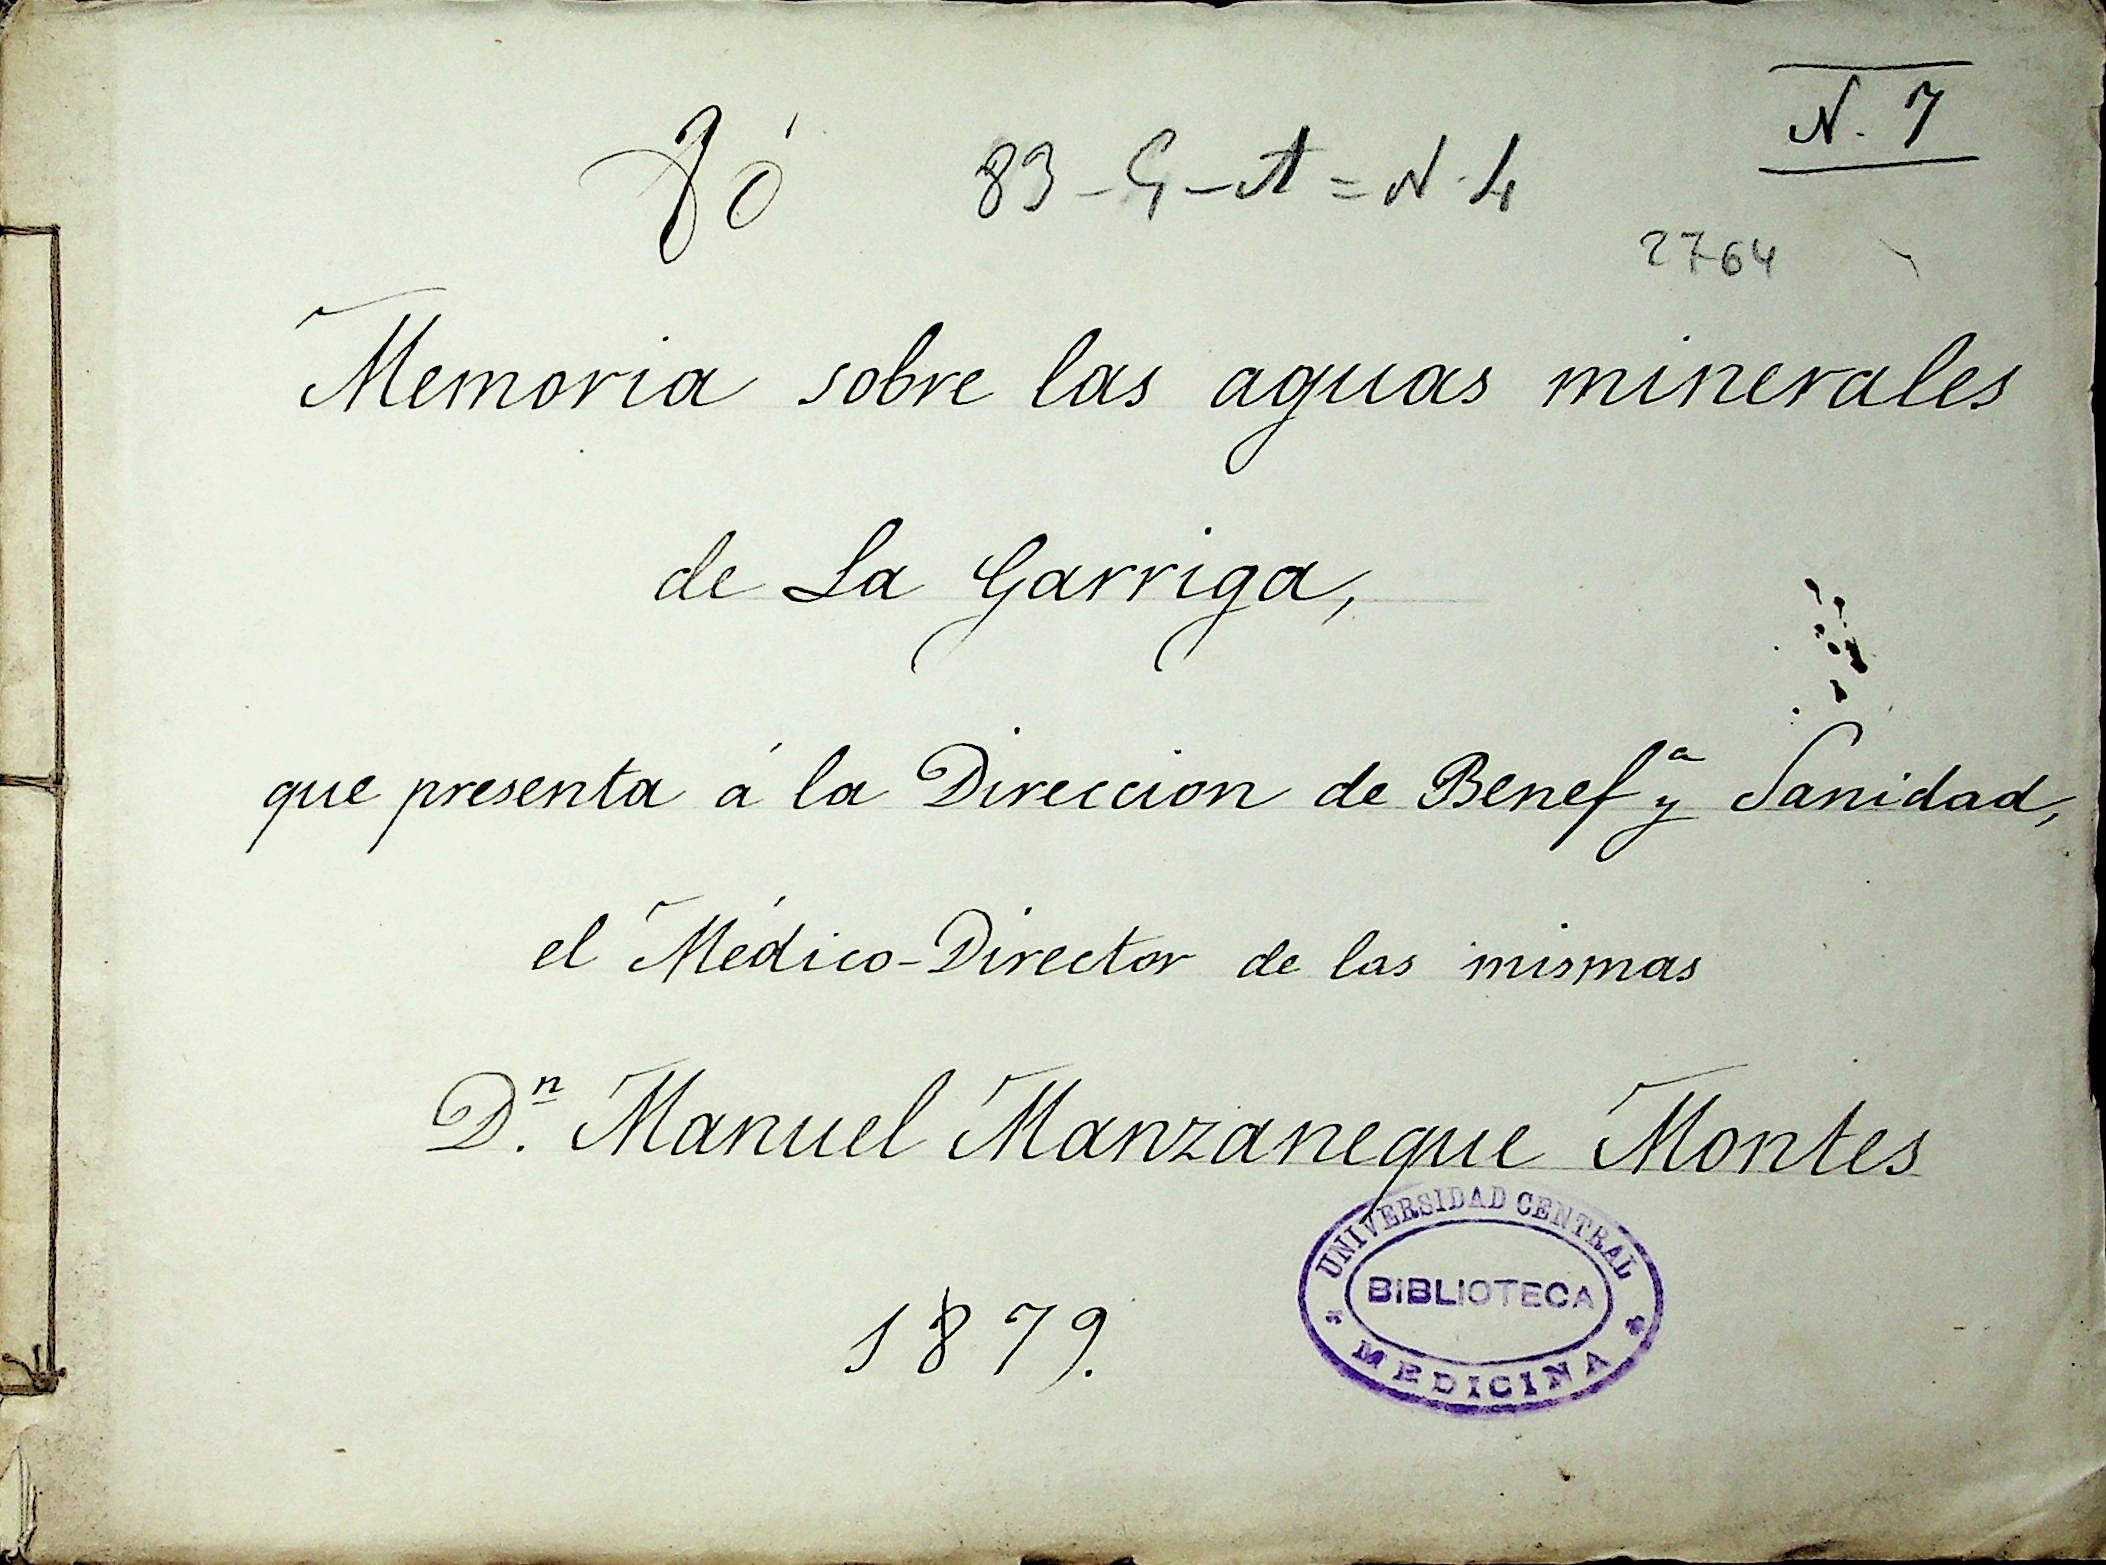 N. 7
83-G-A=N.4
2764
Memoria sobre las aguas minerales
de La Garriga,
que presenta á la Direccion de Benef.ª y Sanidad,
el Médico-Director de las mismas
D.n Manuel Manzaneque Montes
1879.
UNIVERSIDAD CENTRAL
BIBLIOTECA
MEDICINA